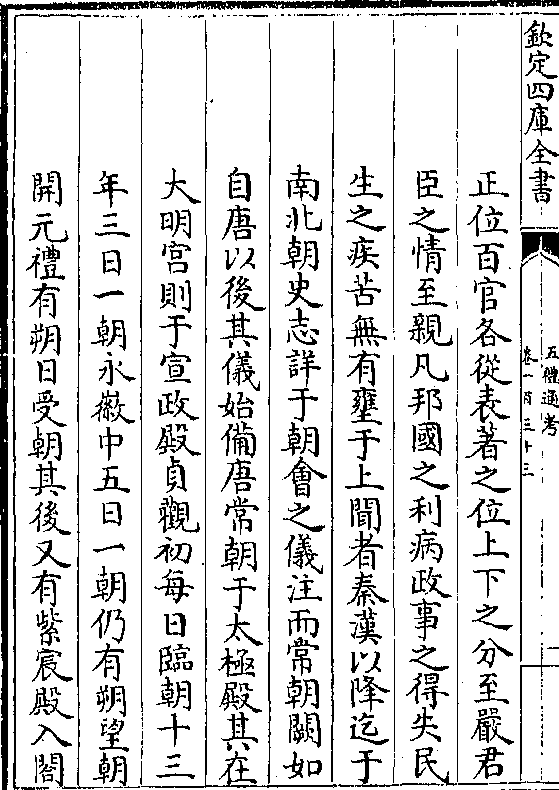 欽定四庫全書
五禮通考
卷一百三十三
正位百官各從表著之位上下之分至嚴君
臣之情至親凡邦國之利病政事之得失民
生之疾苦無有壅于上聞者秦漢以降迄于
南北朝史志詳于朝會之儀注而常朝闕如
自唐以後其儀始備唐常朝于太極殿其在
大明宮則于宣政殿貞觀初每日臨朝十三
年三日一朝永徽中五日一朝仍有朔望朝
開元禮有朔日受朝其後又有紫宸殿入閤